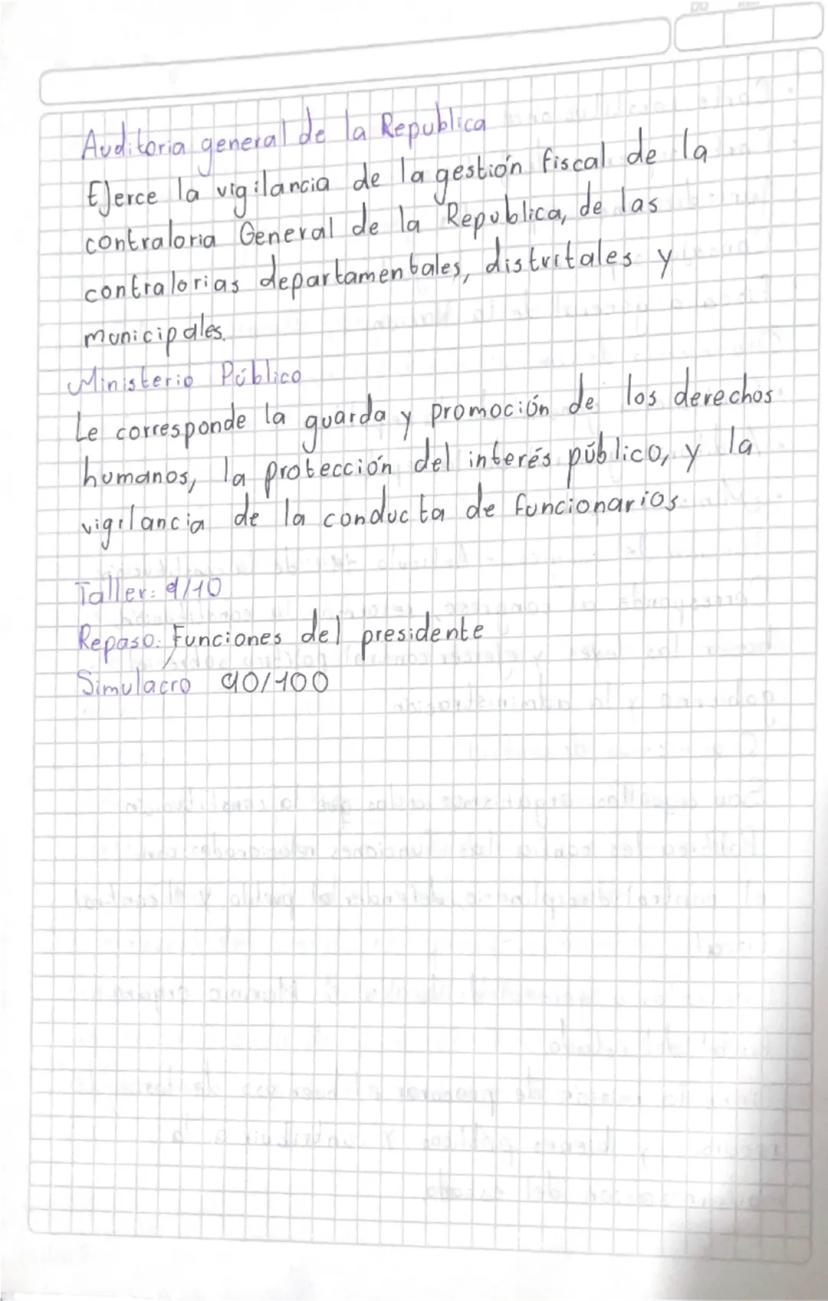 Auditoria general de la Republica
Ejerce la vigilancia de la gestión fiscal de la
contraloria General de la Republica, de las
contralorias departamentales, distritales y
municipales.
Ministerio Público
Le corresponde la guarda y promoción de los derechos
humanos, la protección del interés público, y la
vigilancia de la conducta de funcionarios
Taller: 9/10
Repaso: Funciones del presidente
Simulacro 90/100